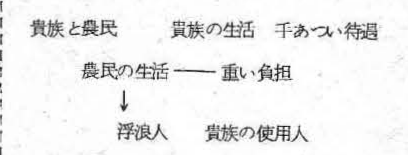 貴族と農民　貴族の生活　手あつい待遇
農民の生活――重い負担
↓
浮浪人　貴族の使用人